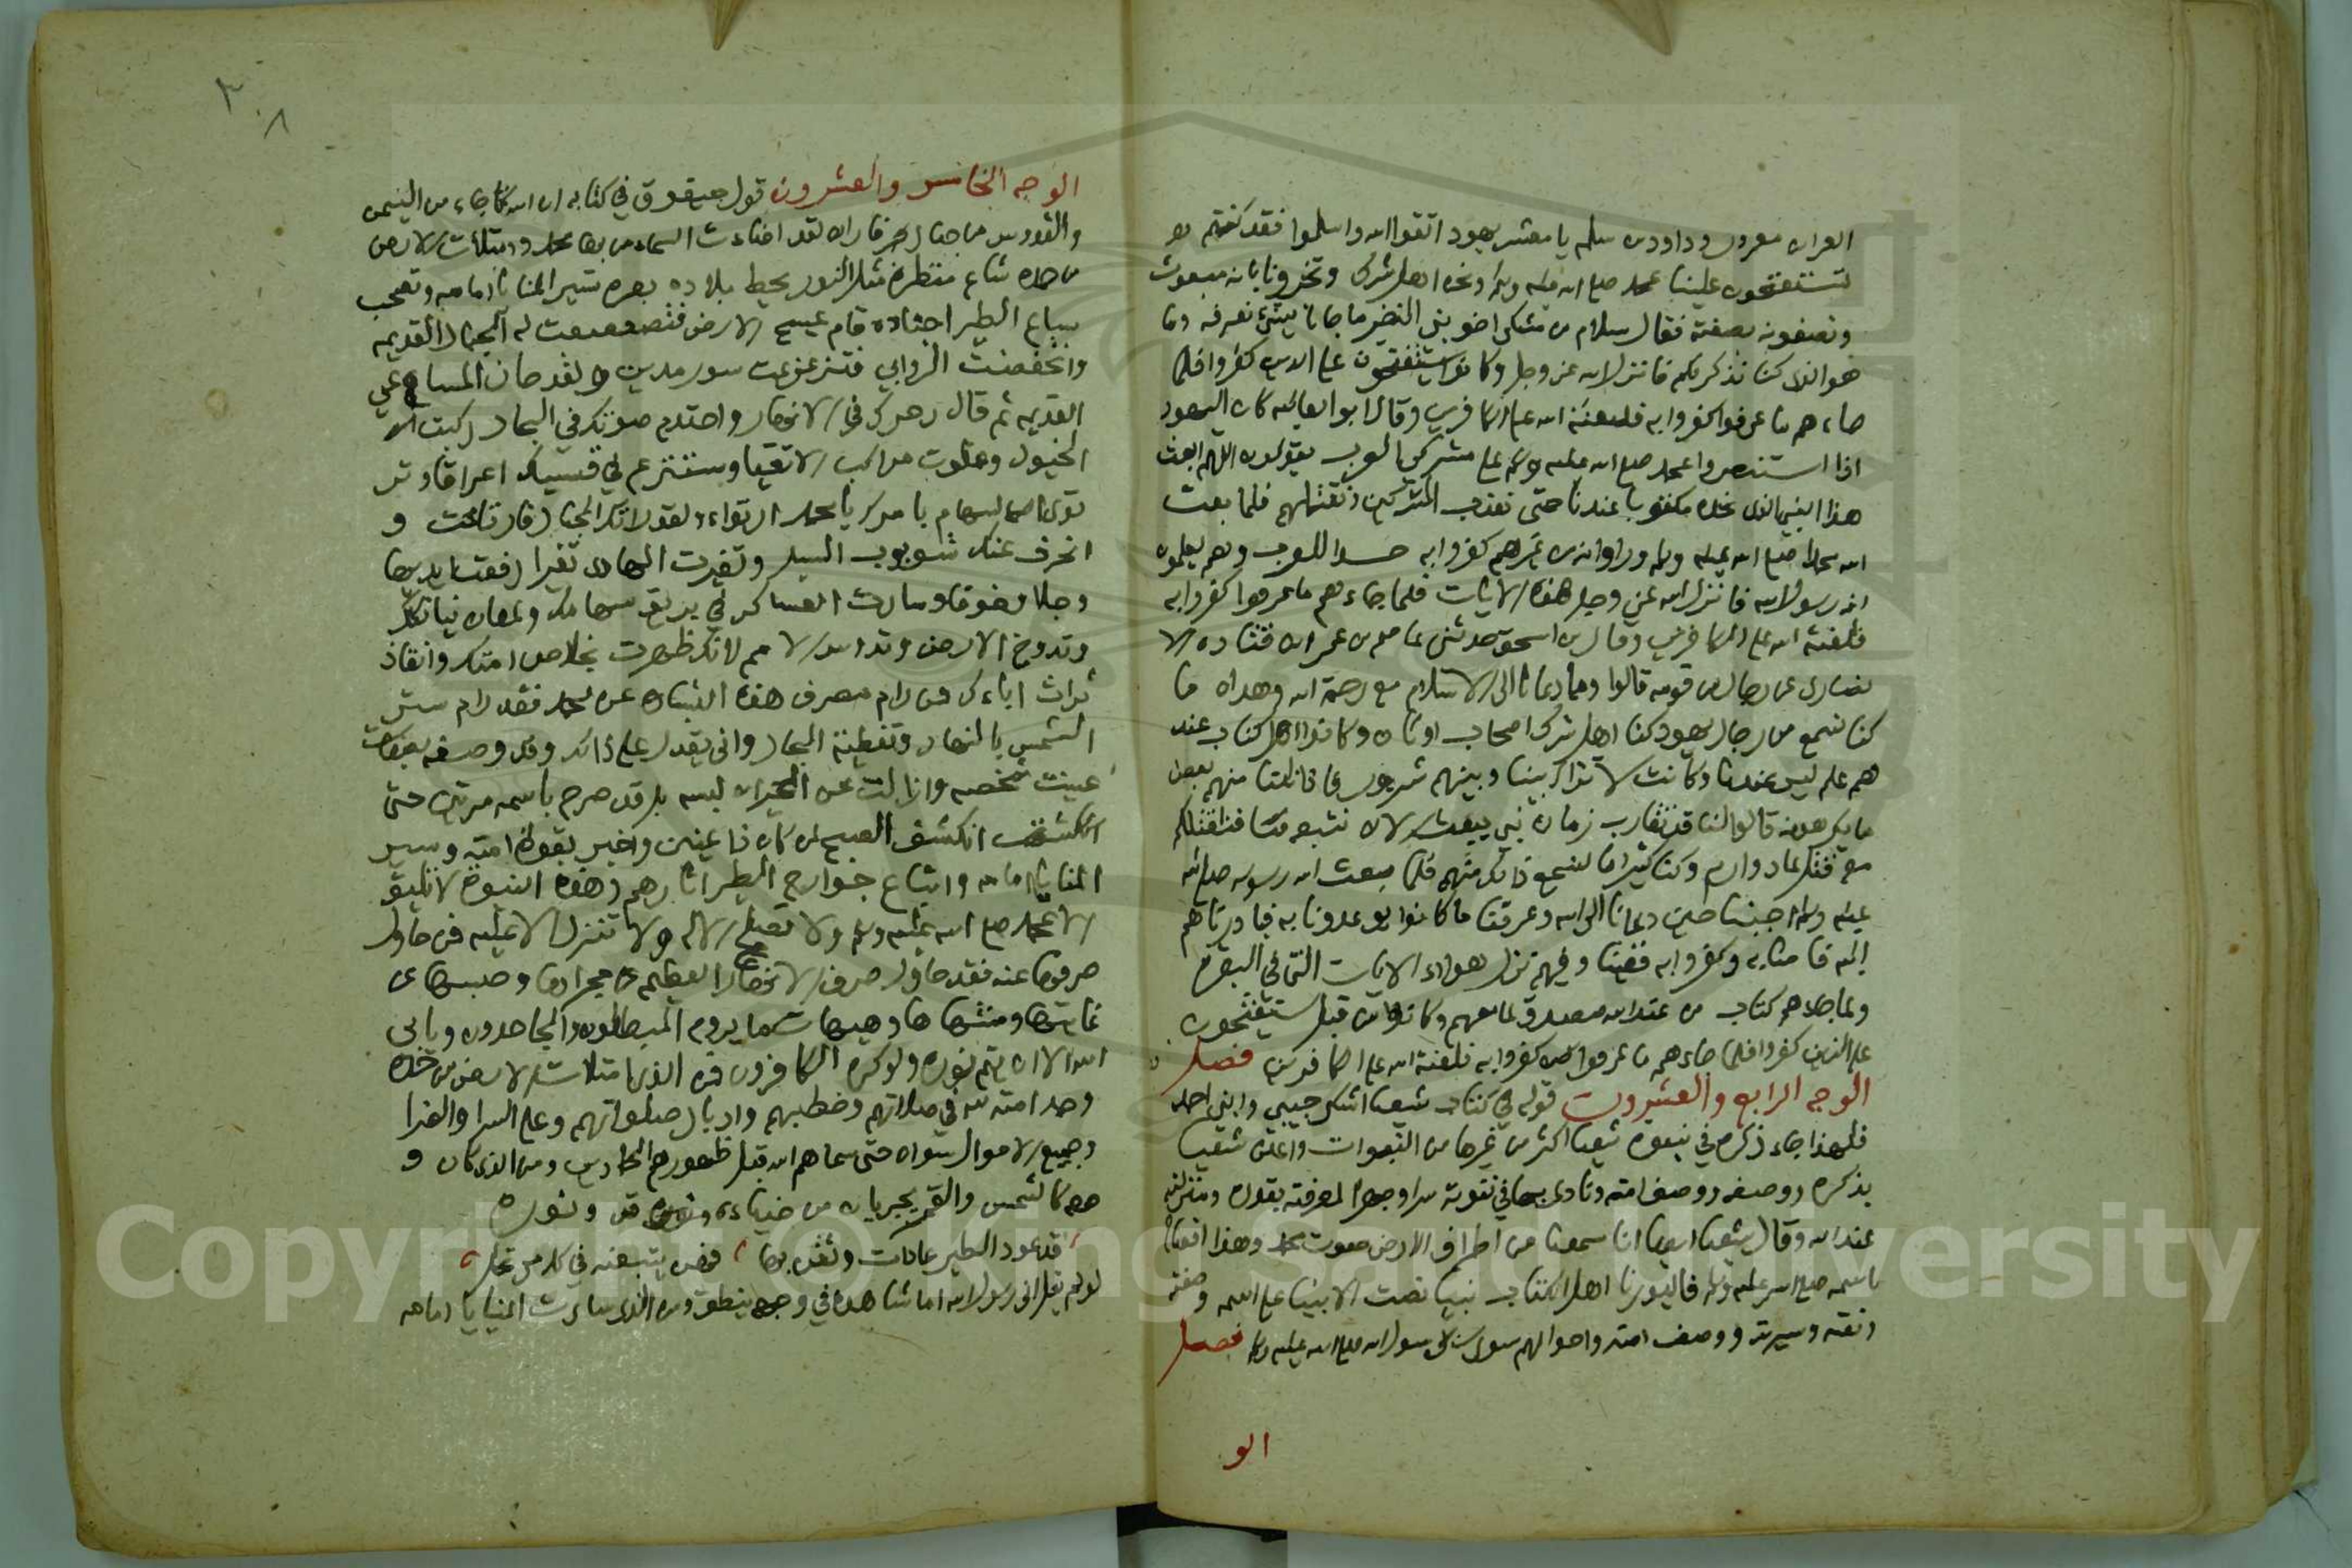 العرا بن معرور وداود بن سلم يا معشر يهود اتقوا الله واسلموا فقد كنتم
تستفتحون علينا بمحمد صلى الله عليه وسلم ونحن اهل شرك وتخبرونا بانه مبعوث
وتصفونه بصفته فقال سلام بن مشكم اخو بني النضير ما جانا بشيء نعرفه وما
هو الذي كنا نذكر لكم فانزل الله عز وجل وكانوا يستفتحون على الدين كفروا فلما
جاءهم ما عرفوا كفروا به فلعنة الله على الكافرين وقال ابو العاليه كان اليهود
اذا استنصروا بمحمد صلى الله عليه وسلم على مشركي العرب يقولون اللهم ابعث
هذا النبي الذي نجده مكتوبا عندنا حتى نعذب المشركين ونقتلهم فلما بعث
الله محمدا صلى الله عليه وسلم وراوا انه من غيرهم كفروا به حسدا للعرب وهم يعلمون
انه رسول الله فانزل الله عز وجل هذه الايات فلما جاءهم ما عرفوا كفروا به
فلعنة الله على الكافرين وقال بن اسحق حدثني عاصم بن عمر بن قتاده الا
نصاري عن رجال من قومه قالوا ومما دعانا الى الاسلام مع رحمة الله وهداه ما
كنا نسمع من رجال يهود كنا اهل شرك اصحاب اوثان وكانوا اهل كتاب عند
هم علم ليس عندنا وكانت لا تزال بيننا وبينهم شرور فاذا نلنا منهم بعض
ما يكرهون قالوا لنا قد تقارب زمان نبي يبعث الان نتبعه فنقتلكم
معه قتل عاد وارم وكنا كثيرا ما نسمع ذلك منهم فلما بعث الله رسوله صلى الله
عليه وسلم اجبنا حين دعانا الى الله وعرفنا ما كانوا يوعدونا به فبادرناهم
اليه فامنا به وكفروا به ففينا وفيهم نزل هولاء الايات التي في البقرة
ولما جاءهم كتاب من عند الله مصدق لما معهم وكانوا من قبل يستفتحون
على الذين كفروا فلما جاءهم ما عرفوا كفروا به فلعنة الله على الكافرين فصل
الوجه الرابع والعشرون قوله في كتاب شعيا اشكر حبيبي وابني احمد
فلهذا جاء ذكره في نبوة شعيا اكثر من غيرها من النبوات واعلن شعيا
بذكره ووصفه ووصف امته ونادى بها في نبوته سرا وجهرا لمعرفته بقدره ومنزلته
عند الله وقال شعيا ايضا انا سمعنا من اطراف الارض صوت محمد وهذا افصاح
باسمه صلى الله عليه وسلم فاليرنا اهل الكتاب نبيا نصت الانبيا على اسمه وصفته
ونعته وسيرته ووصف امته واحوالهم سوى رسول الله صلى الله عليه وسلم فصل
الو
٣٠٨
الوجه الخامس والعشرون قول حبقوق في كتابه ان الله جاء من اليمن
والقدوس من جبال فاران لقد اضاءت السماء من بها محمد وامتلأت الارض
من حمده شاع منظره مثل النور يحيط بلاده بعزه تسير المنايا امامه وتصحب
سباع الطير اجناده قام يمسح الارض فتضعضعت له الجبال القديمه
وانخفضت الروابي فتزعزعت سور مدين ولقد حاز المساعي
القديمه ثم قال زجرك في الانهار واحتدم صوتك في البحار ركبت
الخيول وعلوت مراكب الاتقيا وستنزع في قسيك اعراقا وتر
توي السهام بامرك يا محمد ارتواء ولقد راتك الجبال فارتاعت و
انحرف عنك شوبوب السيل وتغيرت المهاوي تغيرا رفعت ايديها
وجلا وخوفا وسارت العساكر في بريق سهامك ولمعان نيازكك
وتدوخ الارض وتدوس الامم لانك ظهرت بخلاص امتك وانقاذ
تراث ابائك فمن رام صرف هذه البشاره عن محمد فقد رام ستر
الشمس بالنهار وتغطية البحار واني يقدر على ذلك وقد وصفه بصفات
عينت شخصه وازالت عن الحيران لبسه بل قد صرح باسمه مرتين حتى
انكشف الصبح لمن كان ذا عينين واخبر بقوة امته وسير
المنايا امامه واتباع جوارح الطير اثارهم وهذه النبوة لا تليق
الا بمحمد صلى الله عليه وسلم ولا تصلح الا له ولا تنزل الا عليه فمن حاول
صرفها عنه فقد حاول صرف الانهار العظيمه عن مجراها وحبسها عن
غايتها ومنتهاها وهيهات ما يروم المبطلون والجاحدون ويابى
الله الا ان يتم نوره ولو كره الكافرون فمن الذي امتلات الارض من حمده
وحمد امته لله في صلاتهم وخطبهم وادبار صلواتهم وعلى السرا والضرا
وجميع الاحوال سواه حتى سماهم الله قبل ظهورهم الحمادين ومن الذي كان و
جهه كالشمس والقمر يجريان من ضياءه ونوره
قد عود الطير عادات وثقن بها فهن يتبعنه في كل مرتحل
لو لم يقل اني رسول الله اما شاهده في وجهه ينطق ومن الذي سارت المنايا امامه
Copyright © King Saud University